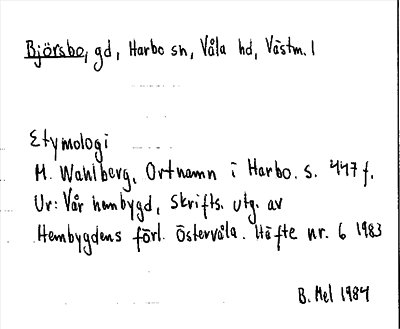 Björsbo, gd, Harbo sn, Våla hd, Västm. l
Etymologi
M. Wahlberg, Ortnamn i Harbo. s. 447 f.
Ur: Vår hembygd, Skrifts. utg. av
Hembygdens förl. Östervåla. Häfte nr. 6 1983
B. Mel 1984